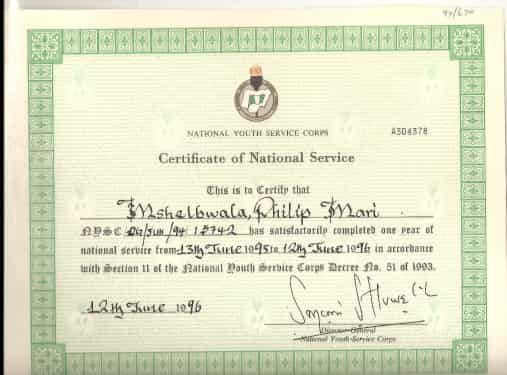 NATIONAL YOUTH SERVICE CORPS
A304378
Certificate of National Service
This is to Certify that
Mshelbwala, Philip Mari
NYSC has satisfactorily completed one year of
national service from 13th June 1995 to 12th June 1996 in accordance
with Section 11 of the National Youth Service Corps Decree No. 51 of 1993.
12th June 1996
Director-General
National Youth Service Corps